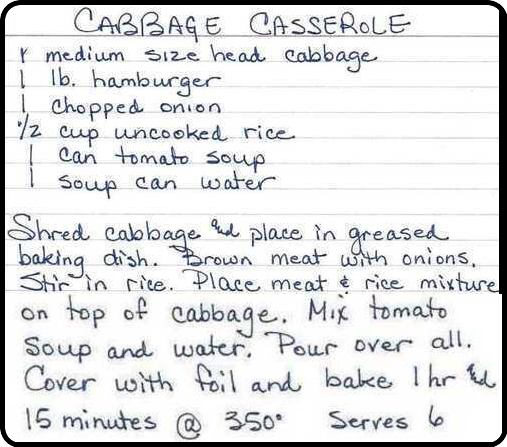 CABBAGE CASSEROLE
1 medium size head cabbage
1 lb. hamburger
1 chopped onion
1/2 cup uncooked rice
1 can tomato soup
1 soup can water
Shred cabbage and place in greased
baking dish. Brown meat with onions.
Stir in rice. Place meat & rice mixture
on top of cabbage. Mix tomato
soup and water. Pour over all.
Cover with foil and bake 1 hr and
15 minutes @ 350° Serves 6